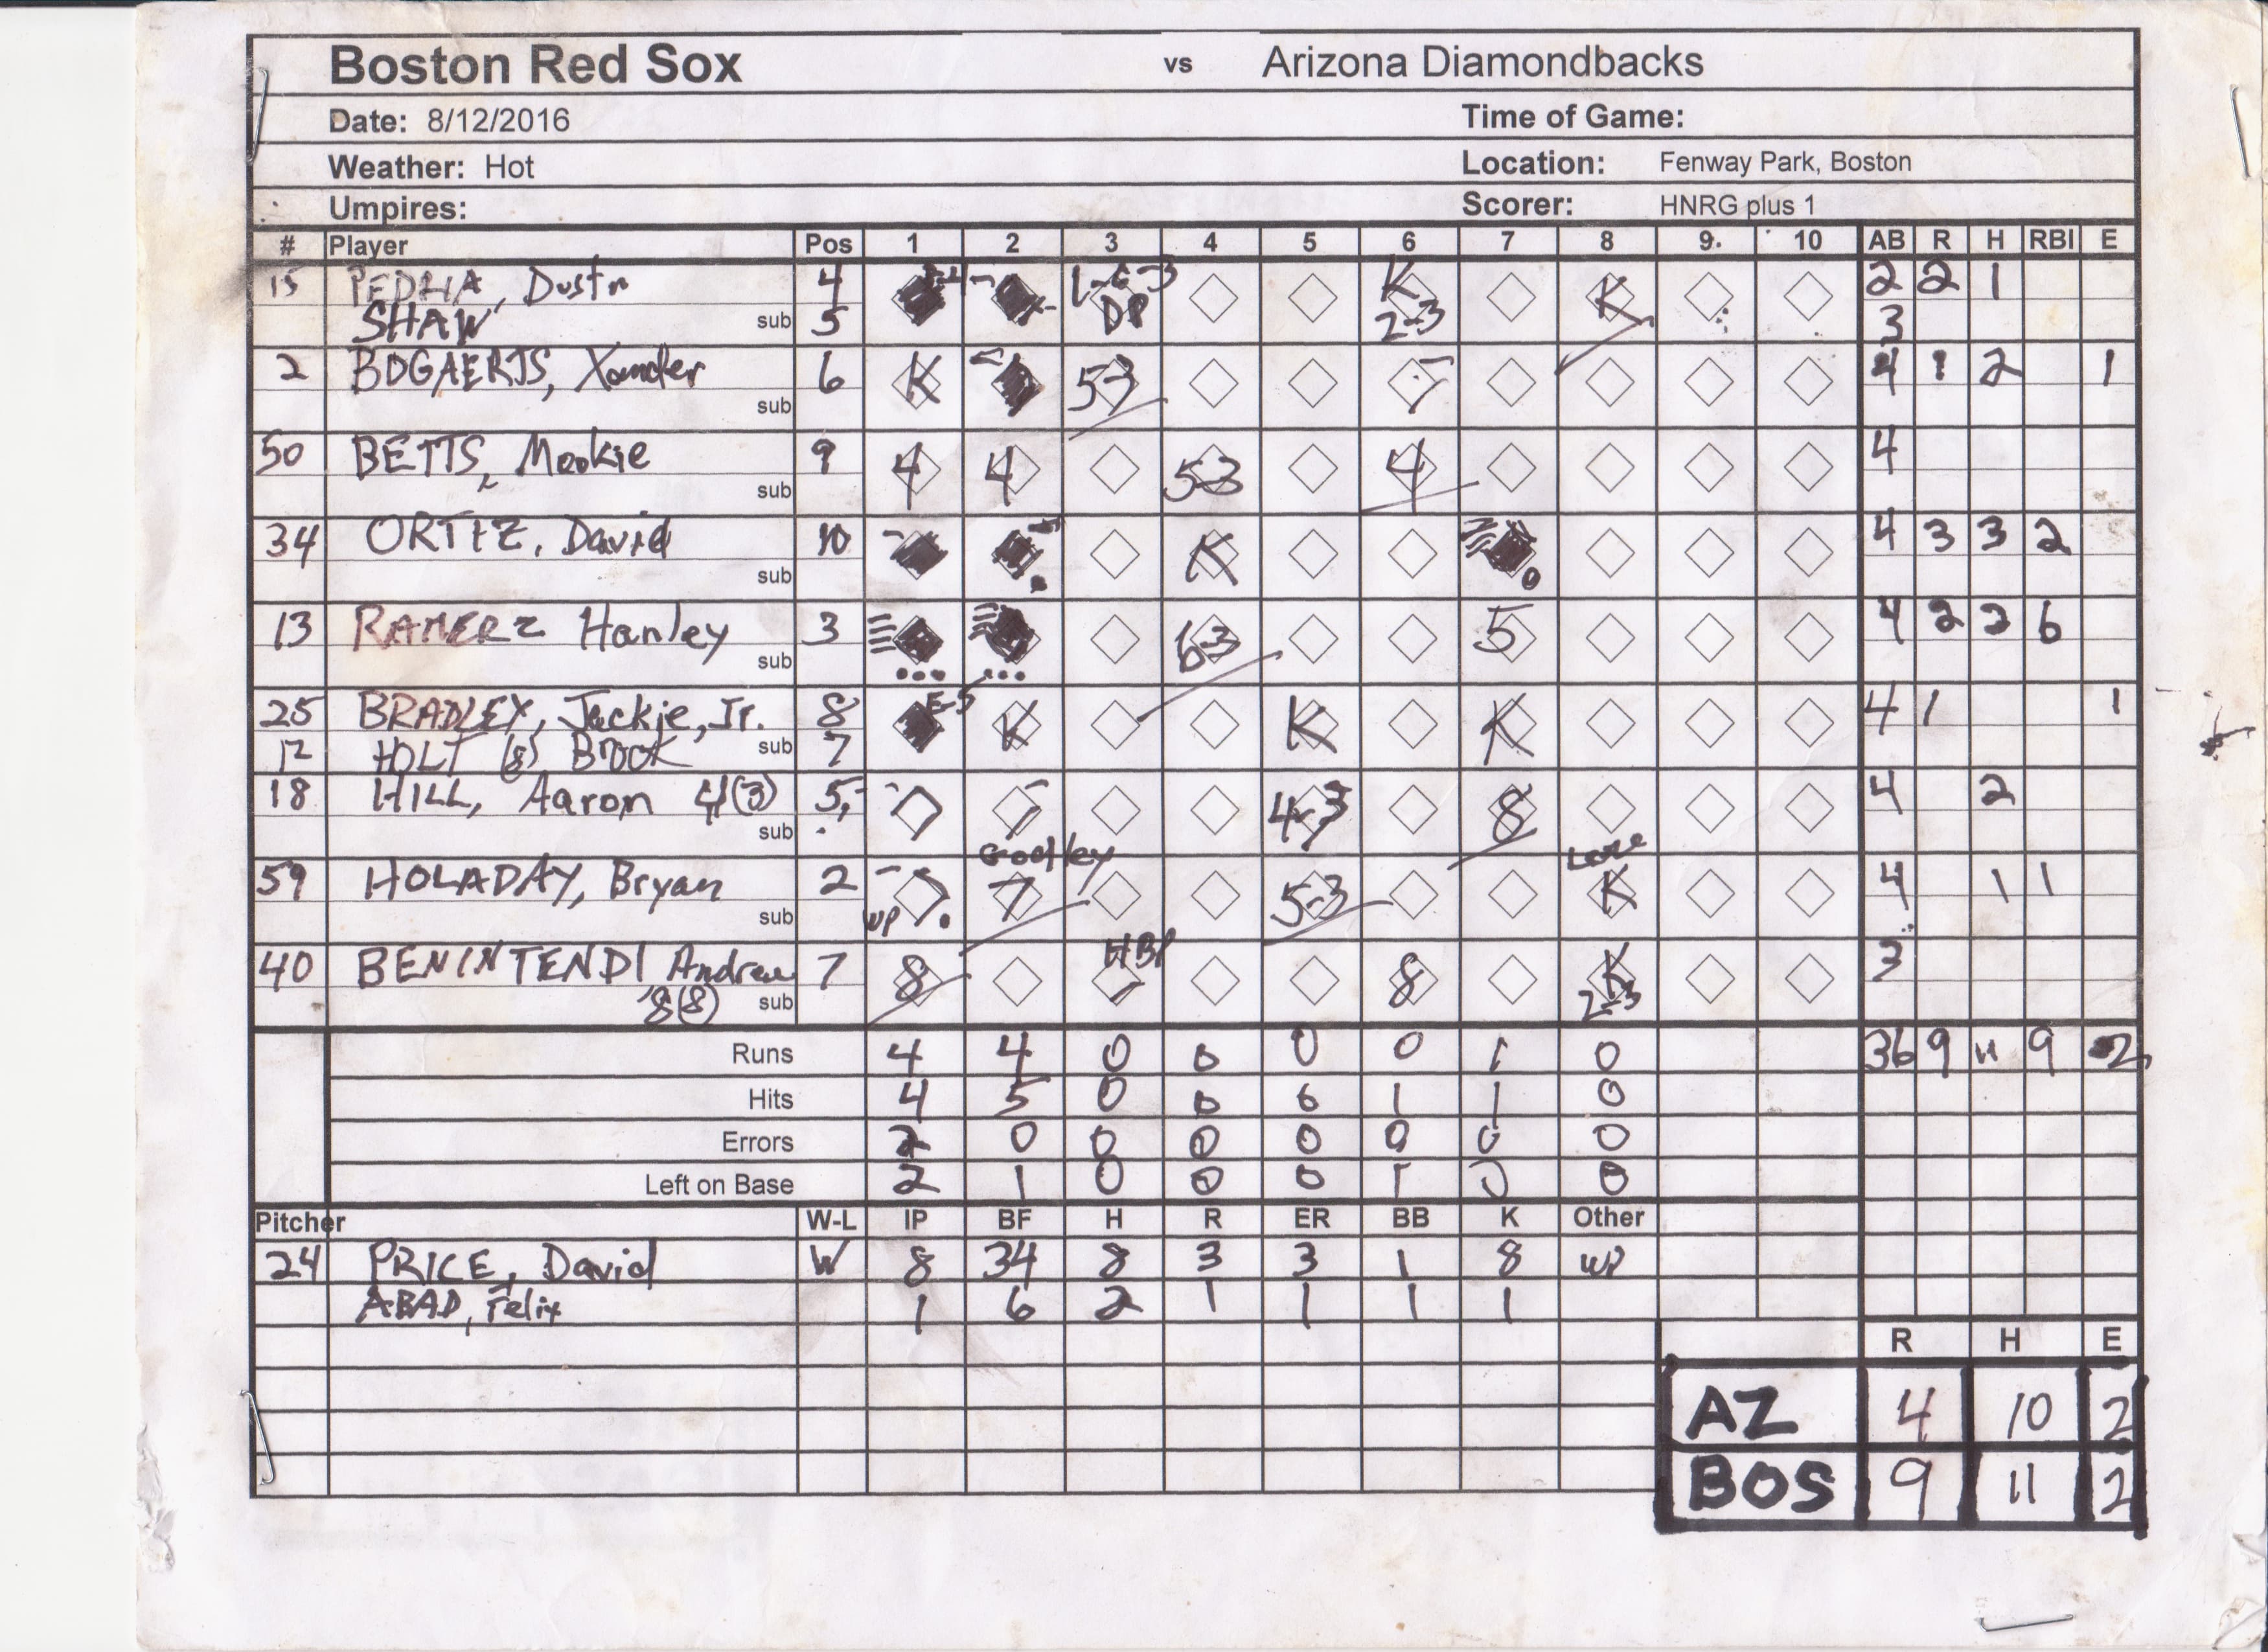 Boston Red Sox vs Arizona Diamondbacks
Date: 8/12/2016 Time of Game:
Weather: Hot Location: Fenway Park, Boston
Umpires: Scorer: HNRG plus 1
# Player Pos 1 2 3 4 5 6 7 8 9 10 AB R H RBI E
15 PEDRIA, Dustn 4 1-6-3 K K 2 2 1
SHAW sub 5 DP 2-3 3
2 BOGAERTS, Xander 6 K 53 4 1 2 1
sub
50 BETTS, Mookie 9 4 4 53 4 4
sub
34 ORTIZ, David 10 K 4 3 3 2
sub
13 RAMERZ Hanley 3 63 5 4 2 2 6
sub
25 BRADLEY, Jackie, Jr. 8 E-5 K K K 4 1 1
12 HOLT (8) Brock sub 7
18 HILL, Aaron 4(3) 5, 4-3 8 4 2
sub
Godley
59 HOLADAY, Bryan 2 7 5-3 K 4 1 1
sub WP
40 BENINTENDI Andrew 7 8 HBP 8 K 3
8(8) sub 2-3
Runs 4 4 0 0 0 0 1 0 36 9 11 9 2
Hits 4 5 0 0 0 1 1 0
Errors 2 0 0 0 0 0 0 0
Left on Base 2 1 0 0 0 1 0 0
Pitcher W-L IP BF H R ER BB K Other
24 PRICE, David W 8 34 8 3 3 1 8 WP
ABAD, Felix 1 6 2 1 1 1 1
R H E
AZ 4 10 2
BOS 9 11 2